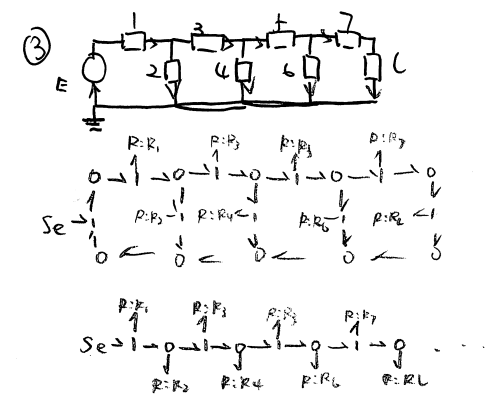 ③
1 3 5 7
2 4 6 L
E
R:R₁ R:R₃ R:R₅ R:R₇
0 → 1 → 0 → 1 → 0 → 1 → 0 → 1 → 0
Se → 1 R:R₂ ← 1 R:R₄ ← 1 R:R₆ ← 1 R:RL ← 1
0 ← 0 ← 0 ← 0 ← 0
R:R₁ R:R₃ R:R₅ R:R₇
Se → 1 → 0 → 1 → 0 → 1 → 0 → 1 → 0 . . . .
R:R₂ R:R₄ R:R₆ R:RL